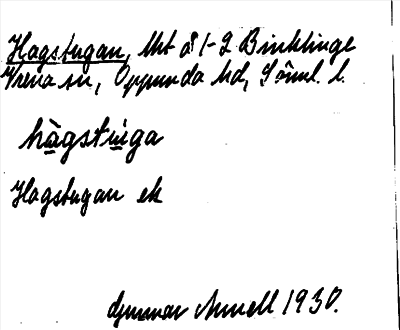 Hagstugan, lht å 1-2 Binklinge
Vrena sn, Oppunda hd, Söml. l.
hàgstuga
Hagstugan ek
Gunnar Annell 1930.